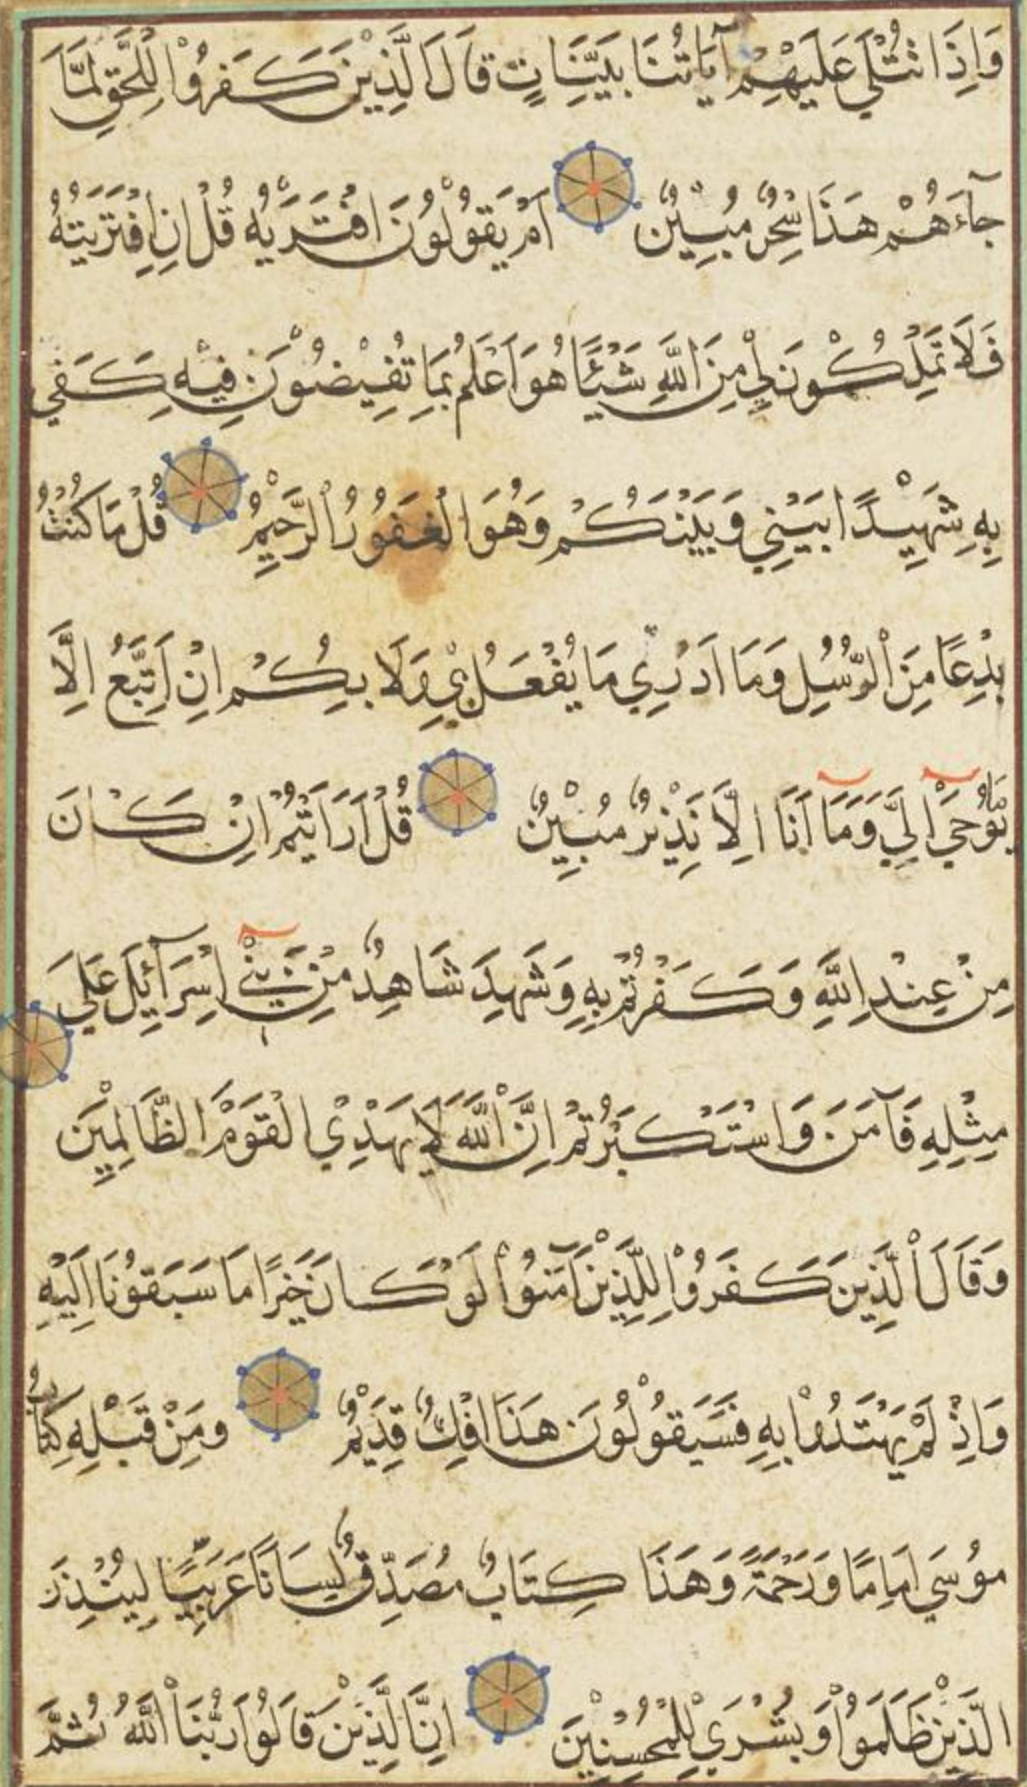 وَاِذَا تُتْلَي عَلَيْهِمْ آيَاتُنَا بَيِّنَاتٍ قَالَ الَّذِيْنَ كَفَرُوْا لِلْحَقِّ لَمَّا
جآءَهُمْ هَذَا سِحْرٌ مُبِيْنٌ اَمْ يَقُوْلُوْنَ افْتَرَيهُ قُلْ اِنِ افْتَرَيْتُهُ
فَلَا تَمْلِكُوْنَ لِيْ مِنَ اللَّهِ شَيْئًا هُوَ اَعْلَمُ بِمَا تُفِيْضُوْنَ فِيْهِ كَفَي
بِهِ شَهِيْدًا بَيْنِي وَبَيْنَكُمْ وَهُوَ الْغَفُوْرُ الرَّحِيْمُ قُلْ مَا كُنْتُ
بِدْعًا مِنَ الرُّسُلِ وَمَا اَدْرِي مَا يُفْعَلُ بِيْ وَلَا بِكُمْ اِنْ اَتَّبِعُ اِلَّا
مَا يُوْحَيْ اِلَيَّ وَمَا اَنَا اِلَّا نَذِيْرٌ مُبِيْنٌ قُلْ اَرَاَيْتُمْ اِنْ كَانَ
مِنْ عِنْدِ اللَّهِ وَكَفَرْتُمْ بِهِ وَشَهِدَ شَاهِدٌ مِنْ بَنِيْ اِسْرَآئِلَ عَلَي
مِثْلِهِ فَآمَنَ وَاسْتَكْبَرْتُمْ اِنَّ اللَّهَ لَا يَهْدِيْ الْقَوْمَ الظَّالِمِيْنَ
وَقَالَ الَّذِينَ كَفَرُوْا لِلَّذِيْنَ آمَنُوْا لَوْ كَانَ خَيْرًا مَا سَبَقُوْنَا اِلَيْهِ
وَاِذْ لَمْ يَهْتَدُوْا بِهِ فَسَيَقُوْلُوْنَ هَذَا اِفْكٌ قَدِيْمٌ ومِنْ قَبْلِهِ كِتَابُ
مُوْسَي اِمَامًا وَرَحْمَةً وَهَذَا كِتَابٌ مُصَدِّقٌ لِسَانًا عَرَبِيًّا لِيُنْذِرَ
الَّذِيْنَ ظَلَمُوْا وَبُشْرَي لِلْمُحْسِنِيْنَ اِنَّ الَّذِيْنَ قَالُوْا رَبُّنَا اللَّهُ ثُمَّ